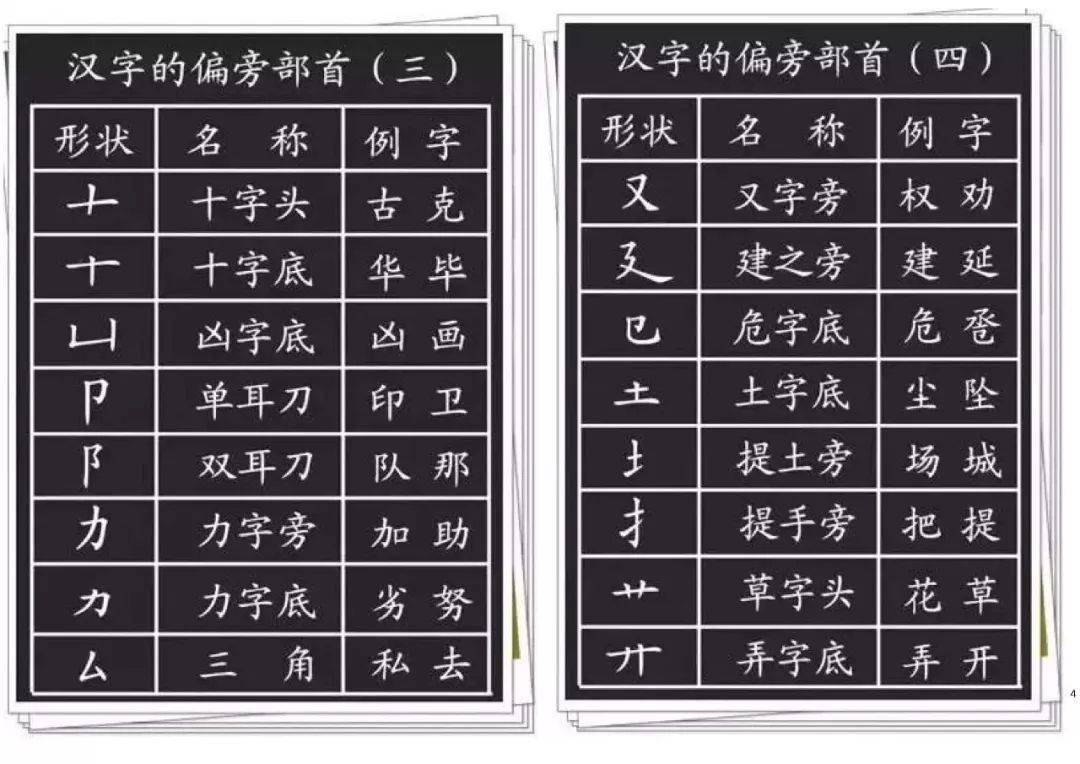 汉字的偏旁部首（三）
形状 名称 例字
十 十字头 古 克
十 十字底 华 毕
凵 凶字底 凶 画
卩 单耳刀 印 卫
阝 双耳刀 队 那
力 力字旁 加 助
力 力字底 劣 努
厶 三角 私 去
汉字的偏旁部首（四）
形状 名称 例字
又 又字旁 权 劝
廴 建之旁 建 延
㔾 危字底 危 卺
土 土字底 尘 坠
土 提土旁 场 城
扌 提手旁 把 提
艹 草字头 花 草
廾 弄字底 弄 开
4